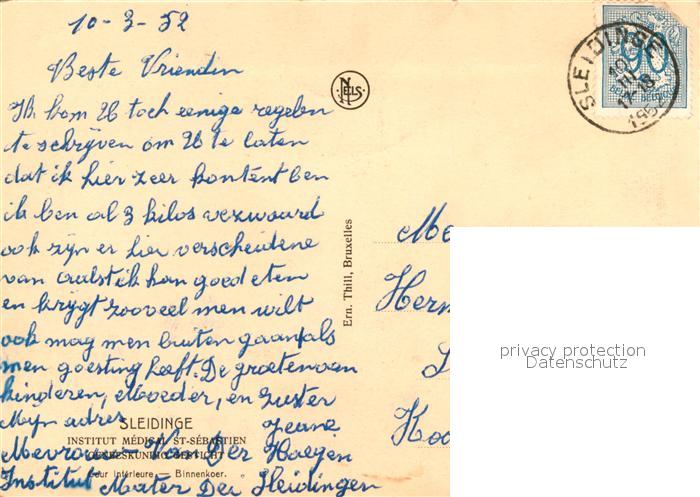 10-3-52
Beste Vriendin
Ik kom U toch eenige regelen
te schrijven om U te laten
dat ik hier zeer kontent ben
ik ben al 3 kilos verzwaard
ook zijn er hier verscheidene
van aalst ik kan goed eten
en krijgt zooveel men wilt
ook mag men buiten gaan als
men goesting heeft. De groeten van
kinderen, Moeder, en Zuster
Mijn adres Jeane
SLEIDINGE
INSTITUT MÉDICAL ST-SÉBASTIEN
GENEESKUNDIG GESTICHT
Cour Intérieure — Binnenkoer.
Mevrouw Van Der Haegen
Institut Mater Dei Sleidingen
NELS
Ern. Thill, Bruxelles
SLEIDINGE
10
III
17-18
1952
90
Me
Herm
Koo
privacy protection
Datenschutz